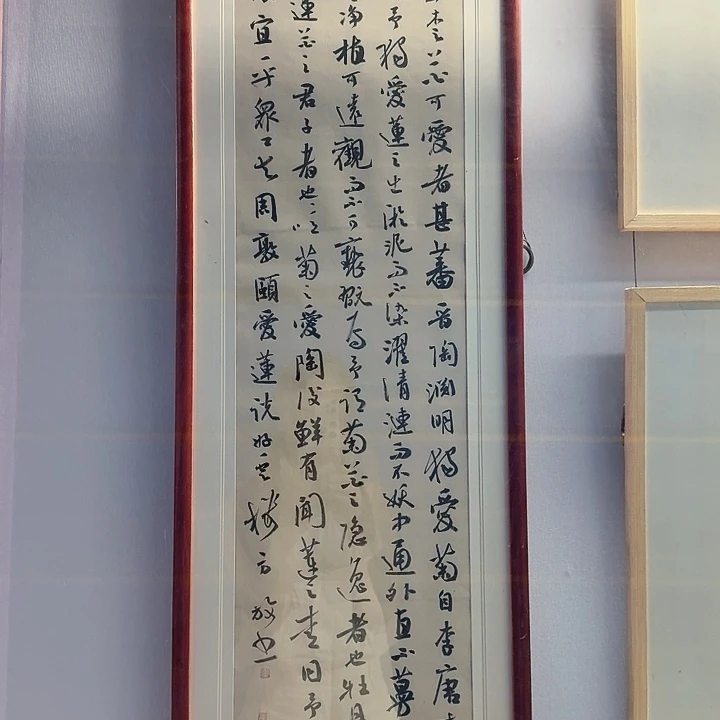 木之花可愛者甚蕃晉陶淵明獨愛菊自李唐
予獨愛蓮之出淤泥而不染濯清漣而不妖中通外直不蔓
淨植可遠觀而不可褻翫焉予謂菊花之隱逸者也牡丹
蓮花之君子者也噫菊之愛陶後鮮有聞蓮之愛同予
宜乎眾矣周敦頤愛蓮說